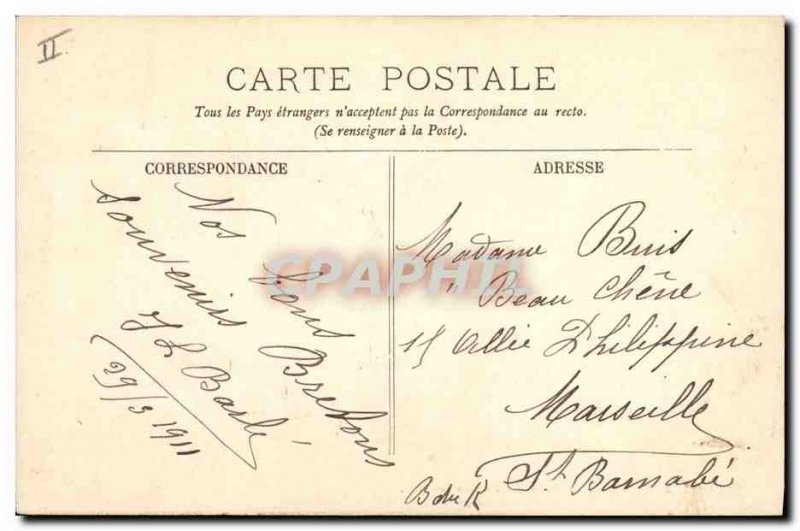 II
CARTE POSTALE
Tous les Pays étrangers n'acceptent pas la Correspondance au recto.
(Se renseigner à la Poste).
CORRESPONDANCE
Nos bons Bretons
souvenirs
29/3 1911
ADRESSE
Madame Buis
" Beau Chêne
15 Allée Philippine
Marseille
St Barnabé
CPAPHIL